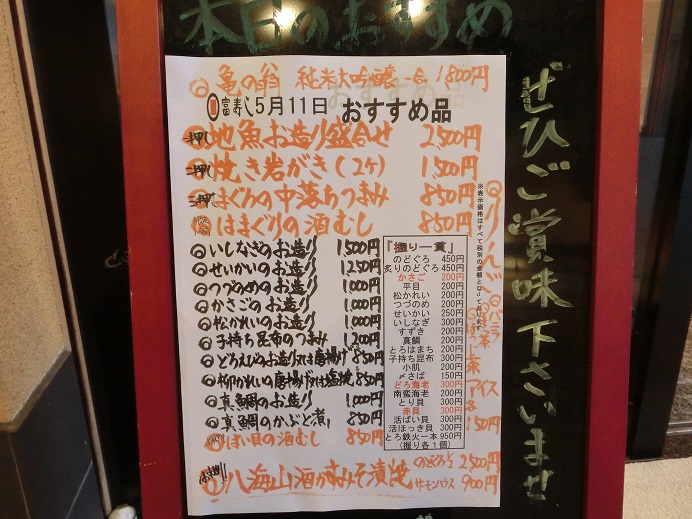 本日のおすすめ
亀の翁 純米大吟醸 一合 1800円
富寿し 5月11日 おすすめ品
一押し 地魚お造り盛合せ 2500円
二押し 焼き岩がき(2ヶ) 1500円
三押し まぐろの中落ちつまみ 850円
はまぐりの酒むし 850円
いしなぎのお造り 1500円
せいかいのお造り 1250円
つづめのお造り 1000円
かさごのお造り 1000円
松かれいのお造り 1000円
子持ち昆布のつまみ 1200円
どろえびのお造り又は唐揚げ 850円
柳かれいの唐揚げ又は塩焼 850円
真鯛のお造り 1000円
真鯛のかぶと煮 850円
ばい貝の酒むし 850円
八海山酒かすみそ漬焼 のどぐろ 2500円
サーモンハラス 900円
『握り一貫』
のどぐろ 450円
炙りのどぐろ 450円
かさご 200円
平目 200円
松かれい 200円
つづのめ 200円
せいかい 250円
いしなぎ 300円
すずき 200円
真鯛 200円
とろはまち 200円
子持ち昆布 300円
小肌 200円
〆さば 150円
どろ海老 300円
南蛮海老 200円
とり貝 300円
赤貝 300円
活ばい貝 300円
活ほっき貝 300円
とろ鉄火一本 950円
(握り各1個)
※表示価格はすべて税別の金額となっております
りんご
バニラ
茶アイス
各150円
ぜひご賞味下さいませ